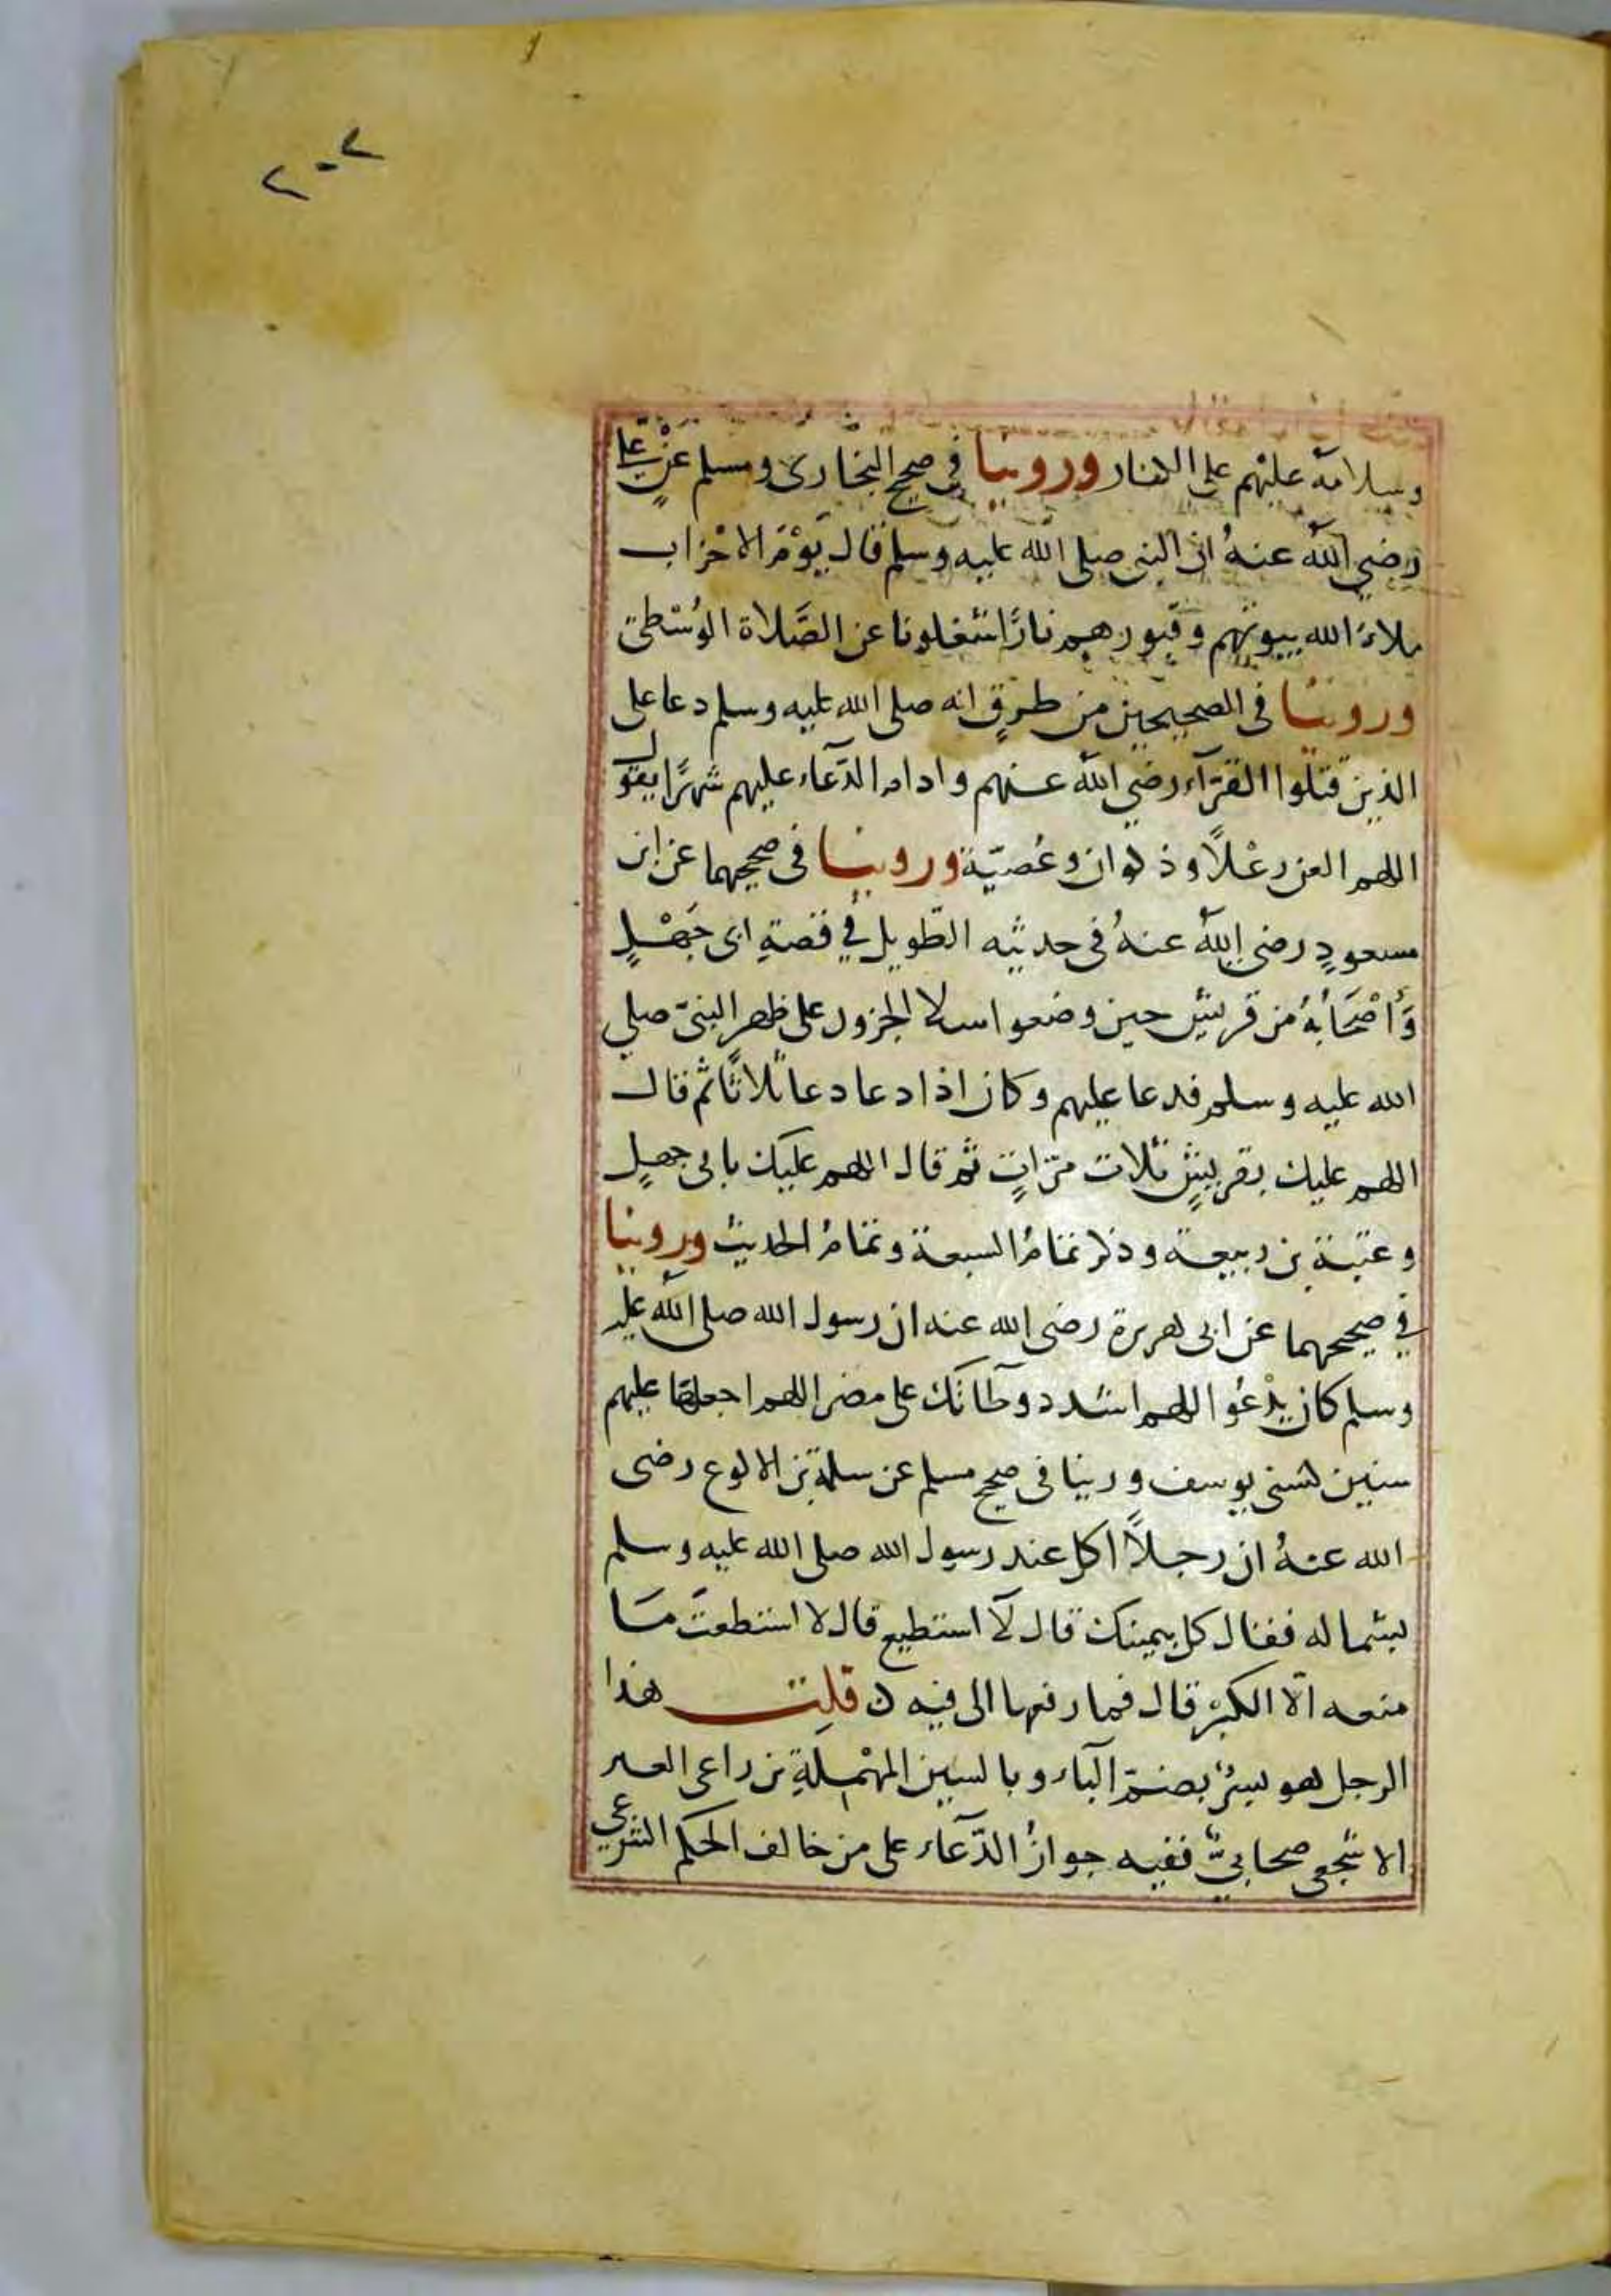 ٢٠٢
وسلامه عليهم على الكفار وروينا في صحيح البخارى ومسلم عَنْ علي
رضي الله عنهُ ان النبي صلى الله عليه وسلم قال يَوْمَ الاحْزاب
ملاءَ الله بيوتهم وقبورهم نارًا شغلونا عن الصَّلاة الوُسْطى
وروينا فى الصحيحين من طرقٍ انه صلى الله عليه وسلم دعا على
الذين قتلوا القرّآء رضي الله عنهم وادام الدّعاء عليهم شهرًا يقول
اللهم العن رعْلاً وذكوان وعُصَيّة وروينا فى صحيحهما عن ابن
مسعودٍ رضى الله عنهُ فى حديثه الطّويل في قصةِ ابى جَهْلٍ
وَأصْحَابُهُ من قريش حين وضعوا سلا الجزور على ظهر النبيّ صلي
الله عليه وسلم فدعا عليهم وكان اذا دعا دعا ثلاثًا ثم قال
اللهم عليك بقريشٍ ثلاث مرّاتٍ ثم قال اللهم عليك بابى جهلٍ
وعتبة بن ربيعة وذكر تمامُ السبعة وتمامُ الحديث وروينا
في صحيحهما عن ابى هريرة رضى الله عنه ان رسول الله صلى الله عليه
وسلم كان يدْعُو اللهم اشدد وطأتك على مضر اللهم اجعلها عليهم
سنين كسنى يوسف وروينا فى صحيح مسلم عن سلمة بن الاكوع رضى
الله عنهُ ان رجلاً اكل عند رسول الله صلى الله عليه وسلم
بشماله فقال كل بيمينك قال لآ استطيع قال لا استطعتَ مَا
منعه الّا الكبْرُ قال فما رفعها الى فيه ن قلت هذا
الرجل هو بسْرٌ بضمّ البآء وبالسين المهْملةِ بن راعى العير
الاشجعى صحابيٌّ ففيه جوازُ الدّعآء على من خالف الحكم الشرعي